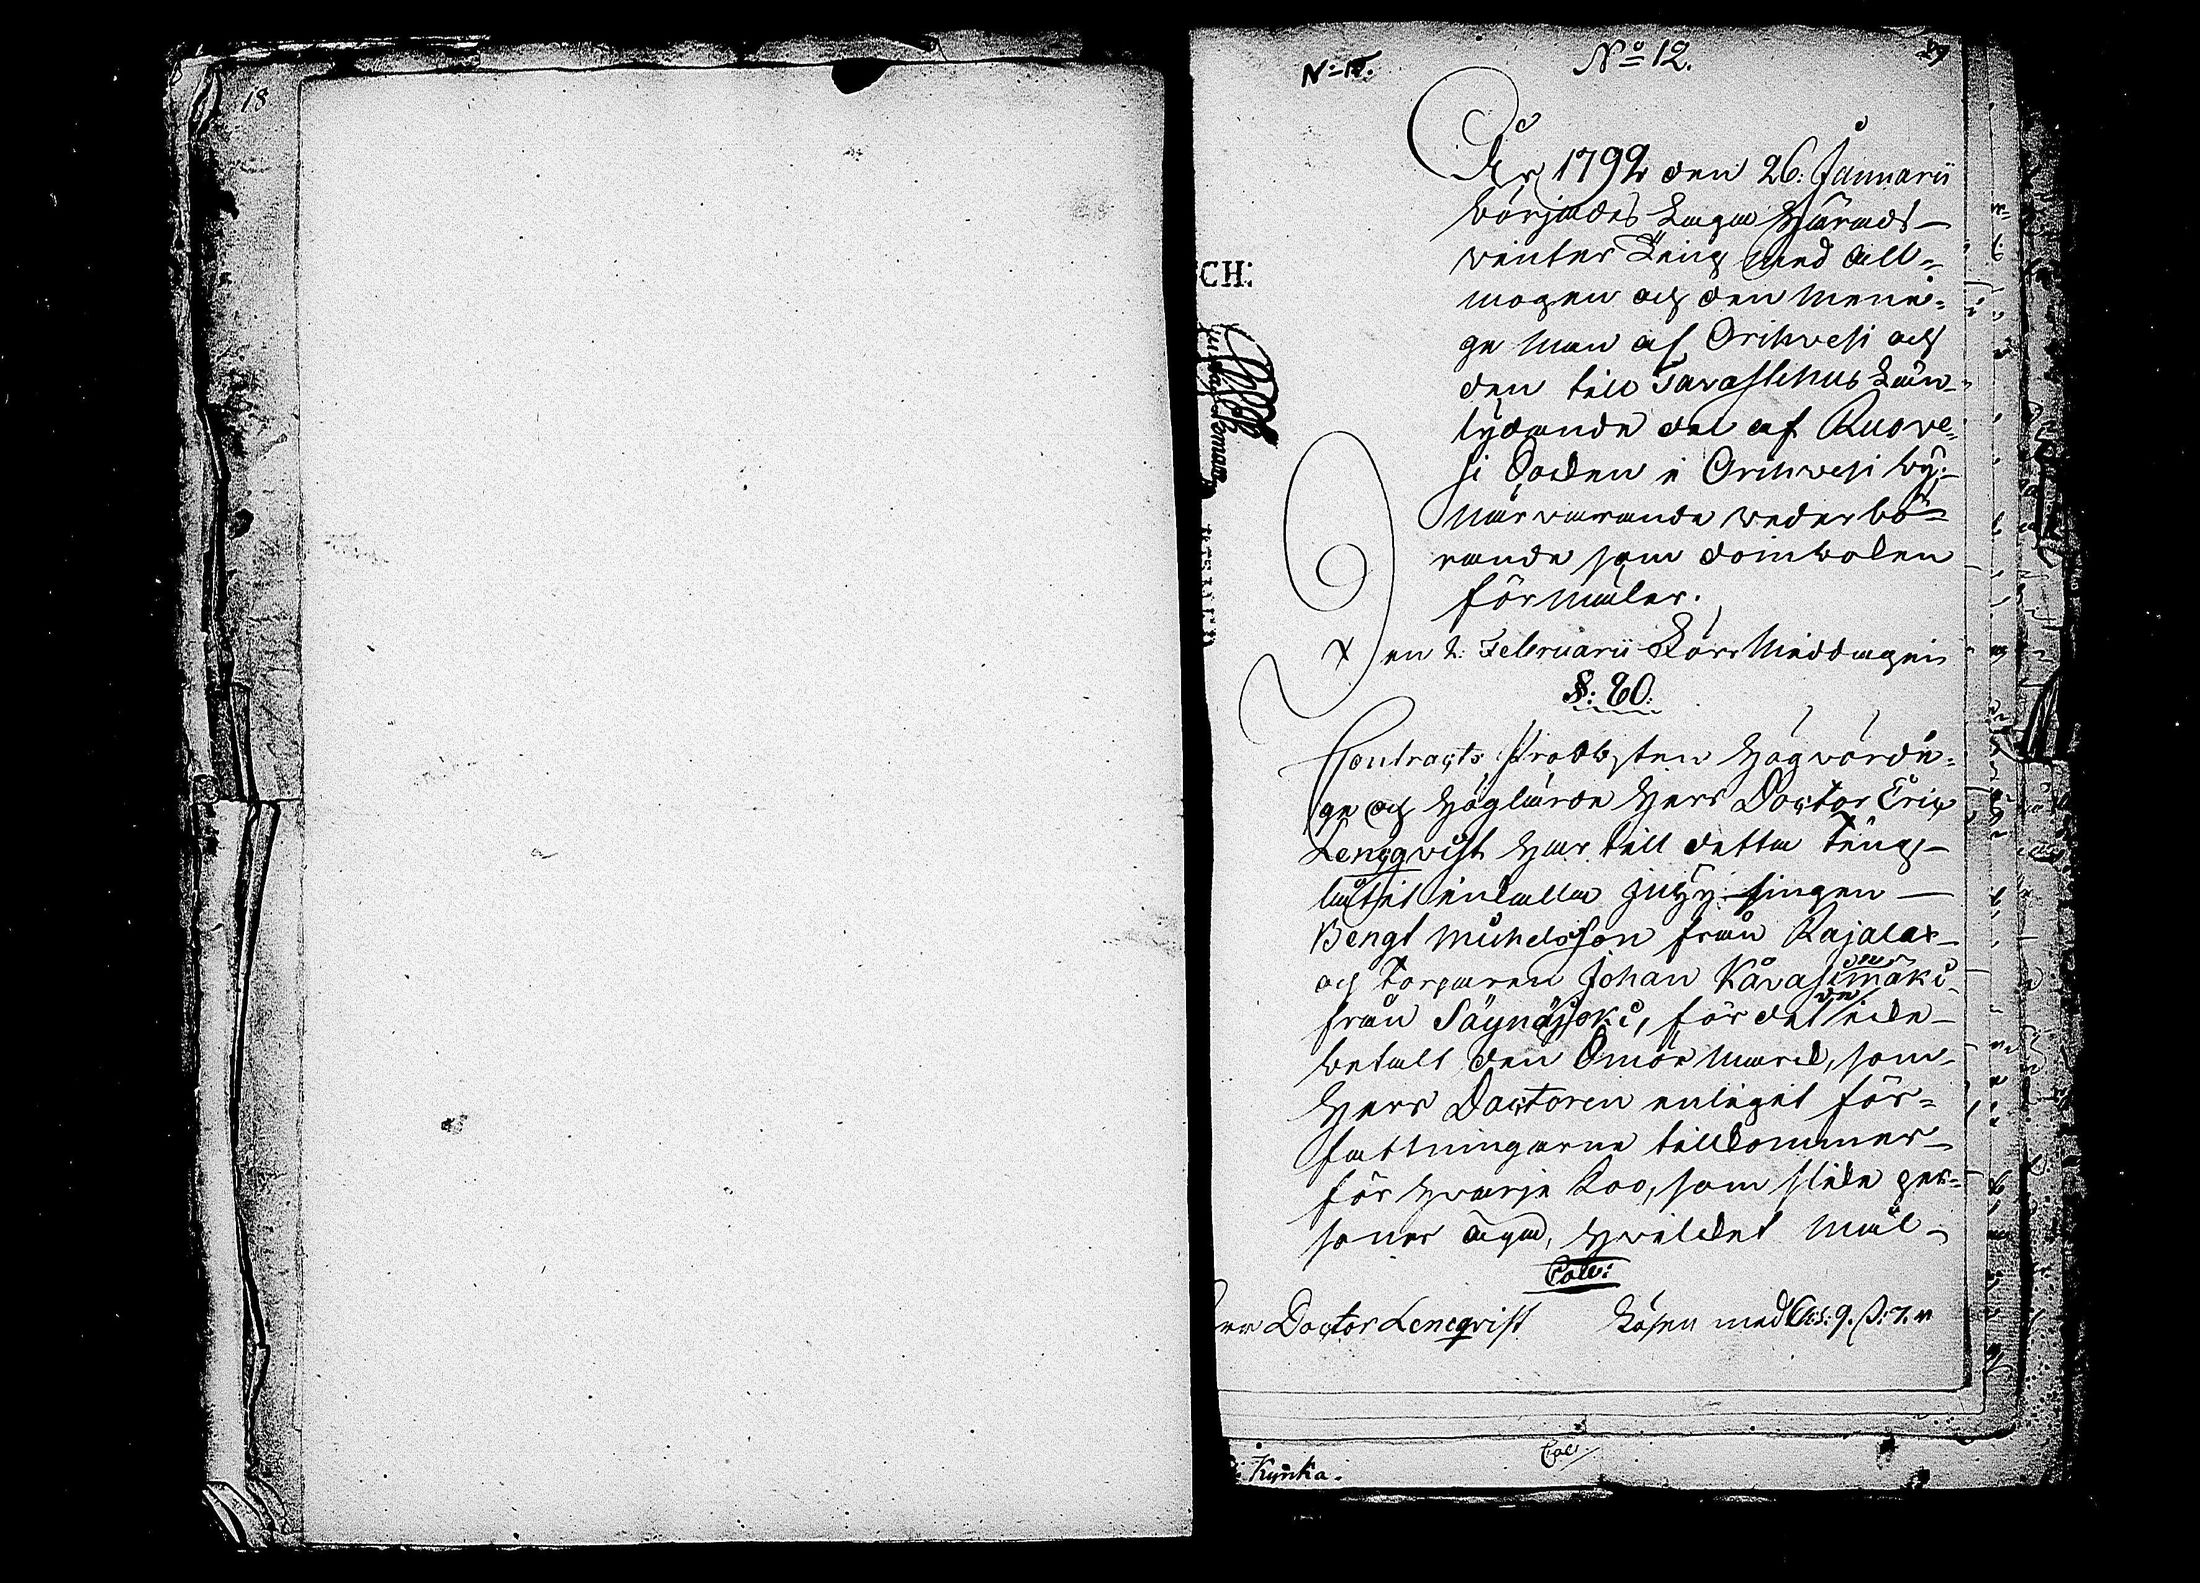 18
N:o 12.
29
CH:
År 1792 den 26. Januarii
börjades Laga Härads-
winter Ting med All-
mogen och den menÿ-
ge Man af Orihvesi och
den till Tavastehus Län
lydande del af Ruove-
si Socken i Orihvesi by;
Närvarande wederbö-
rande som domboken
förmäler.
Den 2. Februarii Förr Middagen
§: 20.
Contracts Probsten Högvördi-
ge och Höglärde Herr Doctor Eric
Lencqvist har till detta Ting
låtit inkalla
Bengt Michelsson från Rajalax
och Torparen Johan Kåvasimäki
från Säynäjoki, för det de icke
betalt den Smör Mard, som
Herr Doctoren enligit för-
fattningarne tillkommer
för hvarje Koo, som slike per-
soner äga, hvilket mål
Coll:
Herr Doctor Lencqvist Lösen med 9. ß: 7. r
Coll
Kynka.